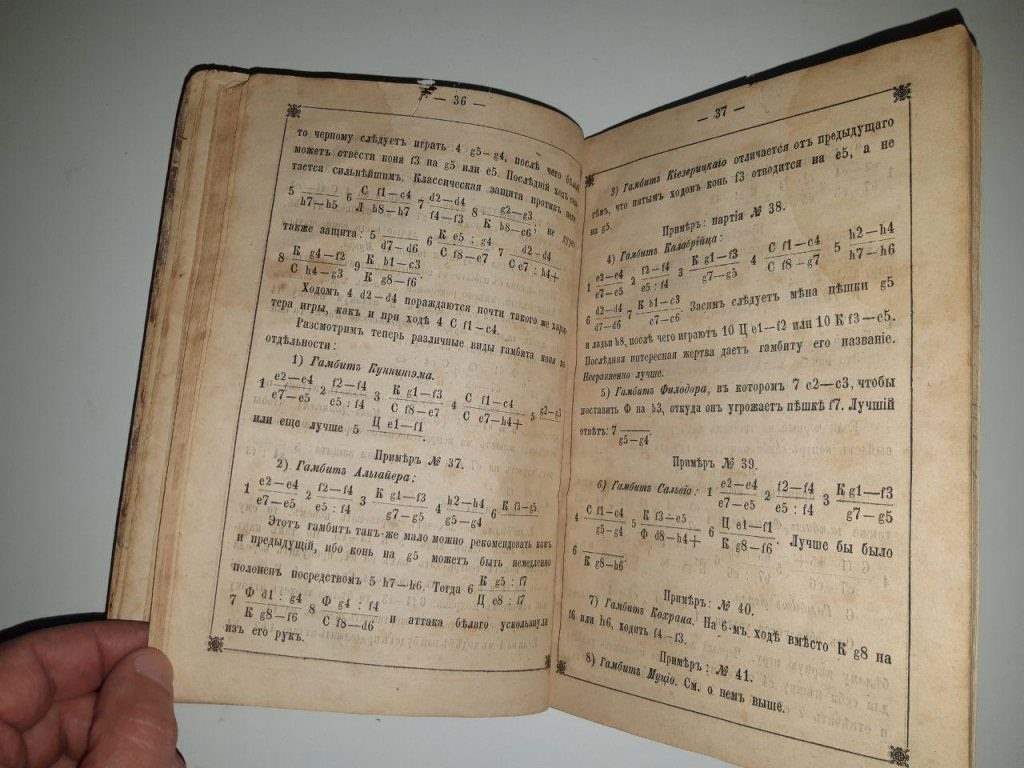 — 36 —
то черному слѣдуетъ играть 4 g5—g4, послѣ чего бѣлый
можетъ отвести коня f3 на g5 или e5. Послѣдній ходъ
тается сильнѣйшимъ. Классическая защита противъ него
5 ——— 6 С f1—c4 7 d2—d4 8 g2—g3 ; не дурна
h7—h5 Л h8—h7 f4—f3 К b8—c6
также защита: 5 ——— 6 К e5 : g4 7 d2—d4
d7—d6 С f8—e7 С e7 : h4+
8 К g4—f2 9 К b1—c3
С h4—g3 К g8—f6 .
Ходомъ 4 d2—d4 порождаются почти такого же харак-
тера игры, какъ и при ходѣ 4 С f1—c4.
Разсмотримъ теперь различные виды гамбита коня въ
отдѣльности:
1) Гамбитъ Куннингэма.
1 e2—e4 2 f2—f4 3 К g1—f3 4 С f1—c4 5 g2—g3
e7—e5 e5 : f4 С f8—e7 С e7—h4+
или еще лучше 5 Ц e1—f1 .
Примѣръ № 37.
2) Гамбитъ Альгайера:
1 e2—e4 2 f2—f4 3 К g1—f3 4 h2—h4 6 К f3—g5
e7—e5 e5 : f4 g7—g5 g5—g4
Этотъ гамбитъ такъ-же мало можно рекомендовать какъ
и предыдущій, ибо конь на g5 можетъ быть немедленно
полоненъ посредствомъ 5 h7—h6. Тогда 6 К g5 : f7
Ц e8 : f7
7 Ф d1 : g4 8 Ф g4 : f4 и аттака бѣлаго ускользнула
К g8—f6 С f8—d6
изъ его рукъ.
— 37 —
3) Гамбитъ Кіезерицкаго отличается отъ предыдущаго
тѣмъ, что пятымъ ходомъ конь f3 отводится на e5, а не
на g5.
Примѣръ: партія № 38.
4) Гамбитъ Калабрійца:
1 e2—e4 2 f2—f4 3 К g1—f3 4 С f1—c4 5 h2—h4
e7—e5 e5 : f4 g7—g5 С f8—g7 h7—h6
6 d2—d4 7 К b1—c3 Засимъ слѣдуетъ мѣна пѣшки g5
d7—d6 c7—c6
и ладьи h8, послѣ чего играютъ 10 Ц e1—f2 или 10 К f3—e5.
Послѣдняя интересная жертва даетъ гамбиту его названіе.
Несравненно лучше.
5) Гамбитъ Филидора, въ которомъ 7 c2—c3, чтобы
поставить Ф на b3, откуда онъ угрожаетъ пѣшкѣ f7. Лучшій
отвѣтъ: 7 ———
g5—g4.
Примѣръ № 39.
6) Гамбитъ Сальвіо: 1 e2—e4 2 f2—f4 3 К g1—f3
e7—e5 e5 : f4 g7—g5
4 С f1—c4 5 К f3—e5 6 Ц e1—f1 . Лучше бы было
g5—g4 Ф d8—h4+ К g8—f6
6 ———
К g8—h6.
Примѣръ: № 40.
7) Гамбитъ Кохрана. На 6-мъ ходѣ вмѣсто К g8 на
f6 или h6, ходить f4—f3.
Примѣръ: № 41.
8) Гамбитъ Муціо. См. о немъ выше.